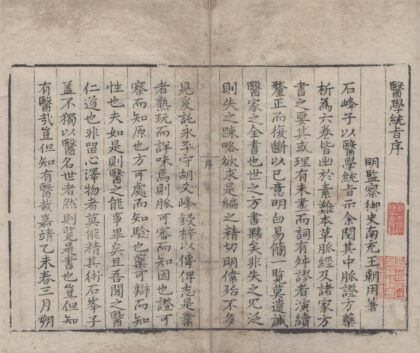 醫學統旨序
明監察御史南充王朝用著
石峰子以醫學統旨示余閱其中脉證方藥
析為六卷皆出於素難本草脉經及諸家方
書之要其或理有未當而詞有舛謬者演繹
釐正而復斷以己意明白易簡一覽莫遺誠
醫家之全書也世之方書夥矣非失之冗泛
則失之踈略欲求是編之精切明備殆不多
見爰託永平守胡文峰鋟梓以傳俾志是業
者熟玩而詳味焉則脉可審而知因也證可
察而知原也方可處而知驗也藥可辯而知
性也夫如是則醫之能事畢矣且吾聞之醫
仁道也非留心澤物者莫能精其術石峰子
蓋不獨以醫名世者然則覽是書也豈但知
有醫哉豈但知有醫哉嘉靖乙未春三月朔
序